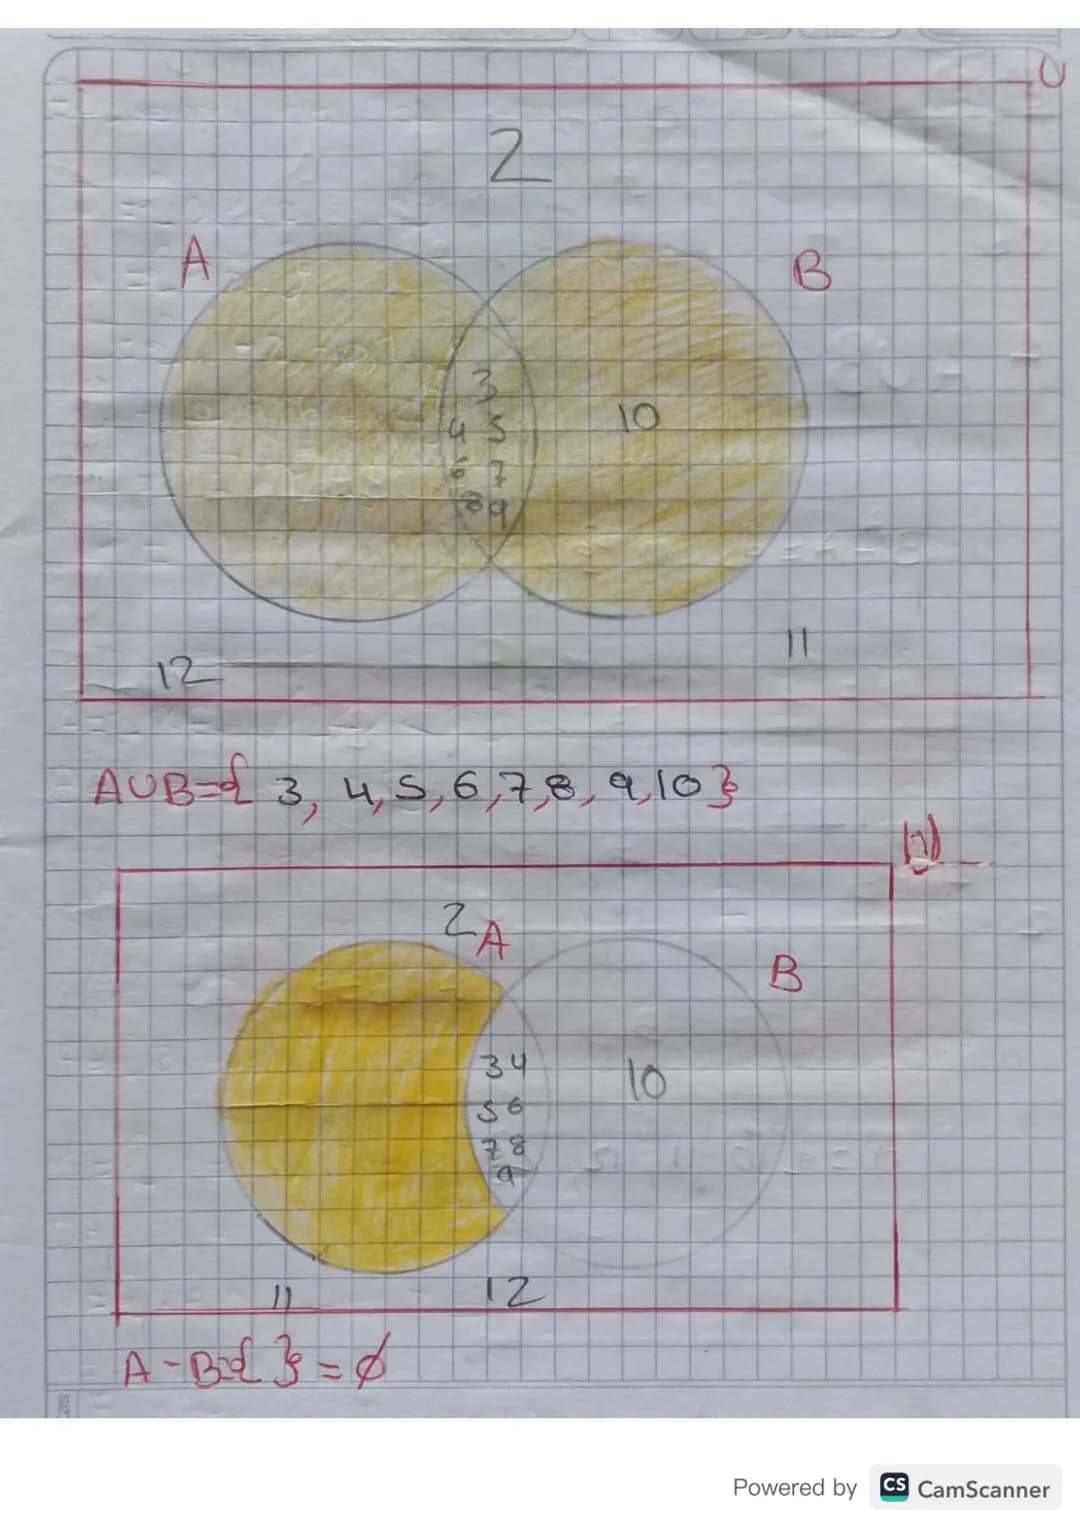 U
2
A
B
3
10
4 5
6 7
8 9
11
12
AUB={ 3, 4, 5, 6, 7, 8, 9, 10 }
U
2
A
B
3 4
10
5 6
7 8
9
11
12
A - B={ } = ∅
Powered by CS CamScanner